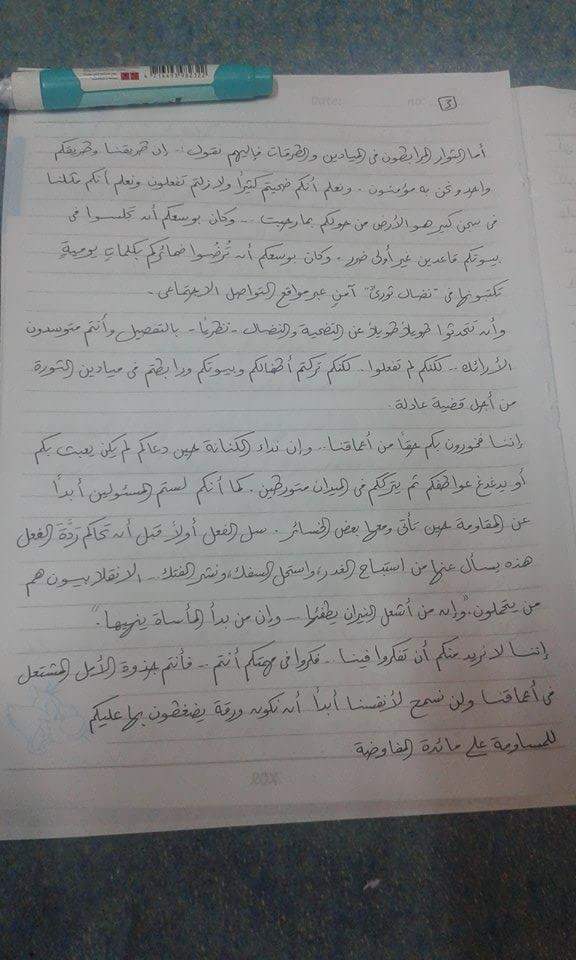 Date: no: 3
أما الثوار المرابطون فى الميادين والطرقات فإليهم نقول :. إن طريقنا وطريقكم
واحد ونحن به مؤمنون . ونعلم أنكم ضحيتم كثيرًا ولازلتم تفعلون ونعلم أنكم مثلنا
فى سجن كبير هو الأرض من حولكم بما رحبت ... وكان بوسعكم أن تجلسوا فى
بيوتكم قاعدين غير أولى ضرر . وكان بوسعكم أن تُرضُوا ضمائركم بكلماتٍ يوميةٍ
تكتبونها فى "نضال ثورىٍّ" آمنٍ عبر مواقع التواصل الاجتماعى .
وأن تتحدثوا طويلاً طويلاً عن التضحية والنضال - نظريًا - بالتفصيل وأنتم متوسدون
الأرائك .. لكنكم لم تفعلوا .. لكنكم تركتم أطفالكم وبيوتكم ورابطتم فى ميادين الثورة
من أجل قضية عادلة .
إننا فخورون بكم حقًا من أعماقنا .. وإن نداء الكنانة حين دعاكم لم يكن يعبث بكم
أو يدغدغ عواطفكم ثم يترككم فى الميدان متورطين . كما أنكم لستم المسئولين أبدًا
عن المقاومة حين تأتى ومعها بعض الخسائر . سل الفعل أولاً قبل أن تحاكم ردَّة الفعل
هذه يسأل عنها من استباح الغدر، واستحل السفك، ونشر الفتك .. الانقلابيون هم
من يتحملون . "وإن من أشعل النيران يطفئها ... وإن من بدأ المأساة ينهيها ."
إننا لا نريد منكم أن تفكروا فينا .. فكروا فى مهمتكم أنتم .. فأنتم جذوة الأمل المشتعل
فى أعماقنا ولن نسمح لأنفسنا أبدًا أن نكون ورقة يضغطون بها عليكم
للمساومة على مائدة المفاوضة